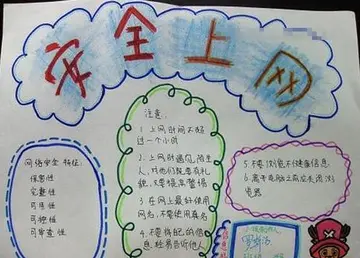 安全上网
网络安全特征:
保密性
完整性
可用性
可控性
可审查性
注意:
1 上网时间不超
过一个小时
2 上网时遇见陌生
人,对他们既要有礼
貌,又要提高警惕
3 在网上最好使用
网名,不要使用真名
4 不要将自己的信
息,轻易告诉他人
5 不要浏览不健康信息
6 离开电脑之前应关闭浏
览器